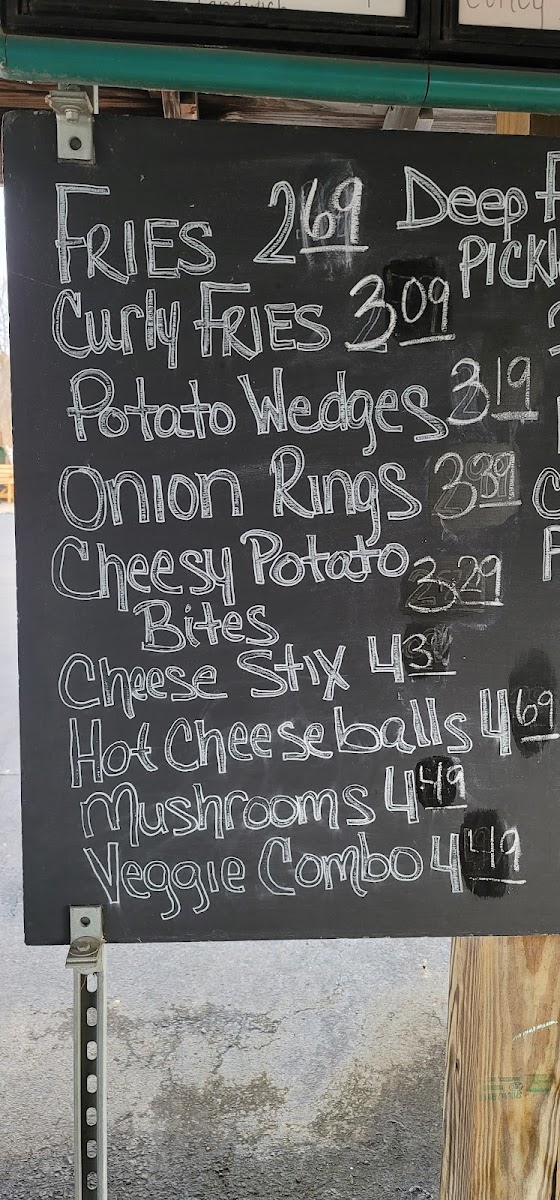 FRIES 2 69
Curly FRIES 3 09
Potato Wedges 3 19
Onion Rings 3 89
Cheesy Potato 3.29
Bites
Cheese Stix 4
Hot Cheeseballs 4 69
Mushrooms 4 49
Veggie Combo 4 49
Deep